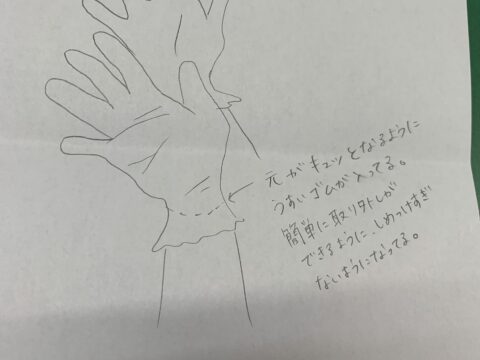 元がキュッとなるように
うすいゴムが入ってる。
簡単に取り外しが
できるように、しめつけすぎ
ないようになってる。